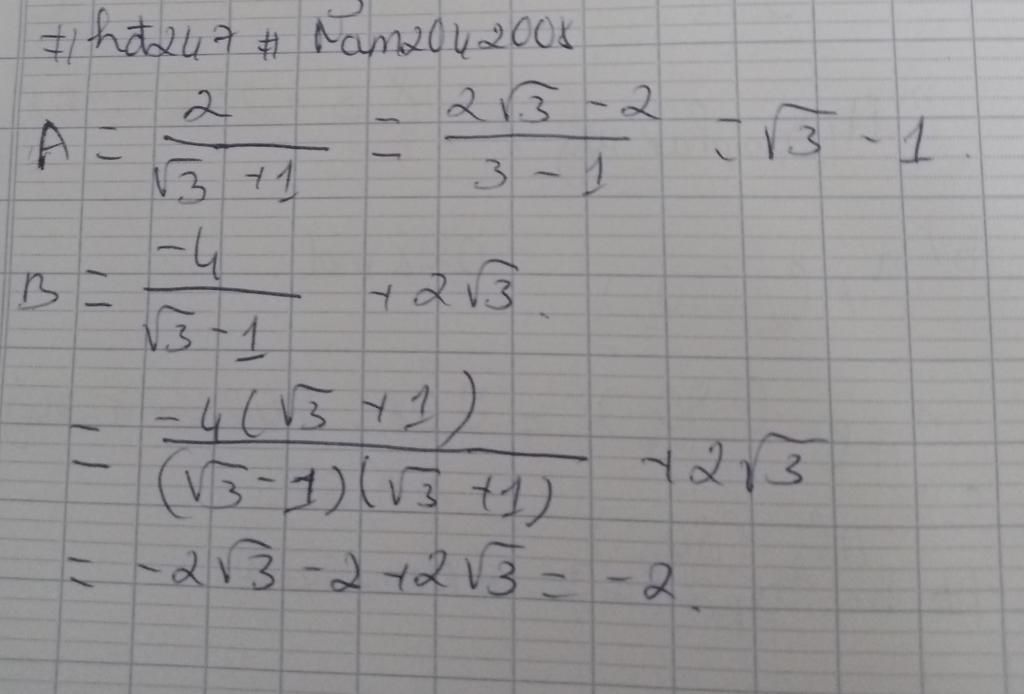 # hđ247 # Nam2042008
A = \frac{2}{\sqrt{3} + 1} = \frac{2\sqrt{3} - 2}{3 - 1} = \sqrt{3} - 1.
B = \frac{-4}{\sqrt{3} - 1} + 2\sqrt{3}.
= \frac{-4(\sqrt{3} + 1)}{(\sqrt{3} - 1)(\sqrt{3} + 1)} + 2\sqrt{3}
= -2\sqrt{3} - 2 + 2\sqrt{3} = -2.